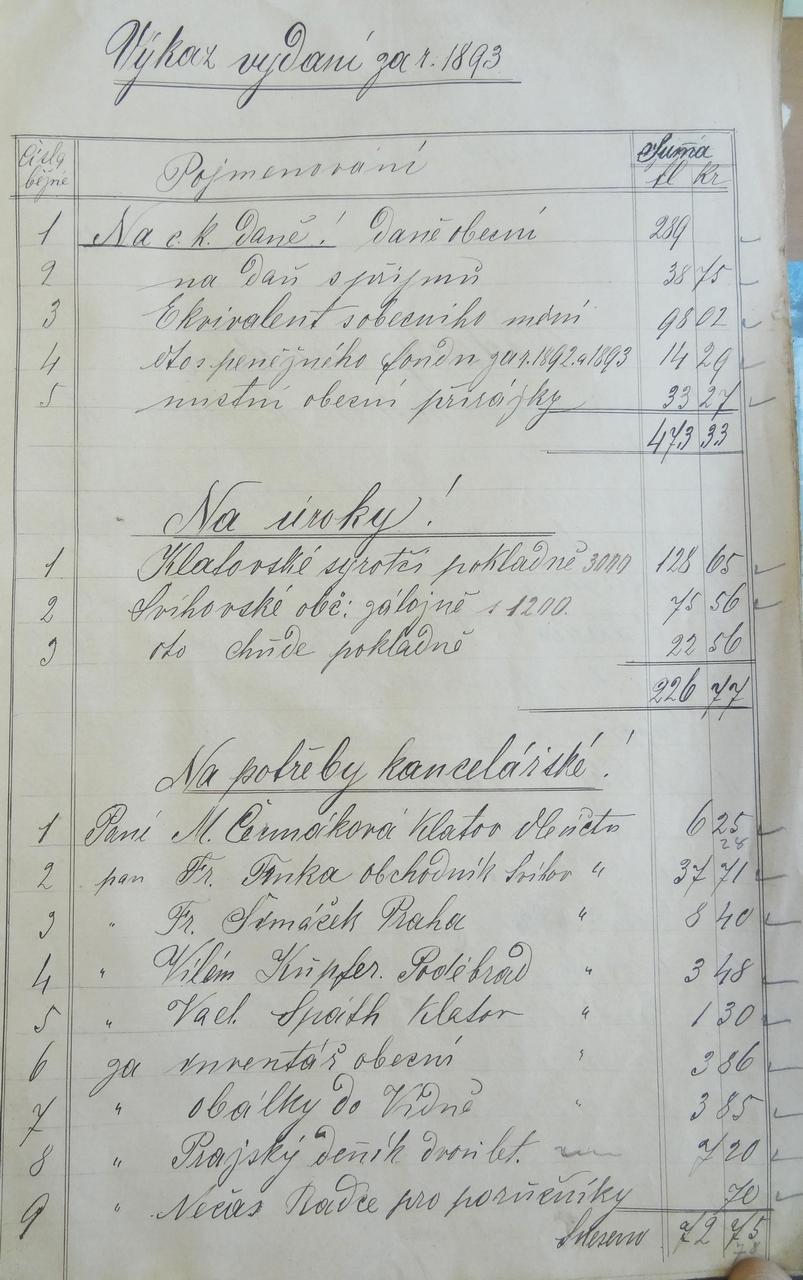 Výkaz vydaní za r. 1893
Čislo běžné Pojmenování Suma zl kr
1 Na c. k. daně! daně obecní 289
2 na daň s příjmů 38 75
3 Ekvivalent s obecního mění 98 02
4 dto s peněžného fondu za r. 1892 a 1893 14 29
5 místní obecní přirážky 33 27
473 33
Na úroky!
1 Klatovské syrotčí pokladně 3000 128 65
2 Švihovské obč: záložně s 1200 75 56
3 dto chudé pokladně 22 56
226 77
Na potřeby kancelářské!
1 Paní M. Čermáková Klatov dle účtu 6 25
28
2 pan Fr. Trnka obchodník Švihov " 37 71
3 " Fr. Šimáček Praha " 8 40
4 " Vilém Kupfer. Poděbrad " 3 48
5 " Vacl. Späth Klatov " 1 30
6 za inventář obecní " 3 86
7 " obálky do Vídně " 3 85
8 " Prajský deník dvoulet. 7 20
9 " Nečas Radce pro poručníky 70
Snešeno 72 75
78